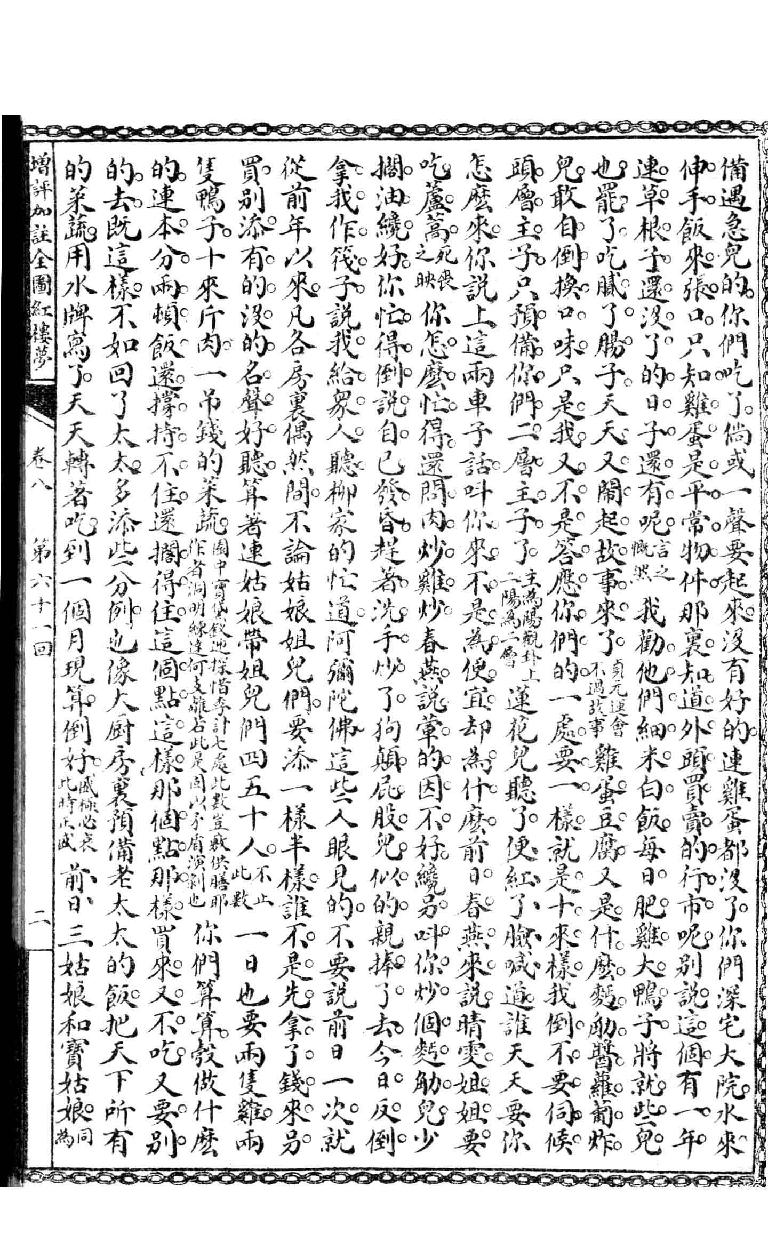 備遇急兒的你們吃了倘或一聲要起來沒有好的連雞蛋都沒了你們深宅大院水來
伸手飯來張口只知雞蛋是平常物件那裏知道外頭買賣的行市呢別說這個有一年
連草根子還沒了的日子還有呢言之慨然我勸他們細米白飯每日肥雞大鴨子將就些兒
也罷了吃膩了腸子天天又鬧起故事來了貞元運會不過故事雞蛋豆腐又是什麼麵觔醬蘿蔔炸
兒敢自倒換口味只是我又不是答應你們的一處要一樣就是十來樣我倒不要伺候
頭層主子只預備你們二層主子了主為陽觀卦上二陽為二層蓮花兒聽了便紅了臉喊道誰天天要你
怎麼來你說上這兩車子話叫你來不是為便宜却為什麼前日春燕來說晴雯姐姐要
吃蘆蒿死喪之映你怎麼忙得還問肉炒雞炒春燕說葷的因不好纔另叫你炒個麵觔兒少
擱油纔好你忙得倒說自己發昏趕著洗手炒了狗顛屁股兒似的親捧了去今日反倒
拿我作筏子說我給眾人聽柳家的忙道阿彌陀佛這些人眼見的不要說前日一次就
從前年以來凡各房裏偶然間不論姑娘姐兒們要添一樣半樣誰不是先拿了錢來另
買別添有的沒的名聲好聽算著連姑娘帶姐兒們四五十人不止此數一日也要兩隻雞兩
隻鴨子十來斤肉一吊錢的菜蔬園中寶黛釵迎探惜李計七處此數豈敷供膳耶作者洞明練達何支離若此是固以矛盾演剝也你們算算彀做什麼
的連本分兩頓飯還撐持不住還擱得住這個點這樣那個點那樣買來又不吃又要別
的去既這樣不如回了太太多添些分例也像大厨房裏預備老太太的飯把天下所有
的菜蔬用水牌寫了天天轉著吃到一個月現算倒好盛極必衰此時正盛前日三姑娘和寶姑娘同為
增評加註全圖紅樓夢
卷八
第六十一回
二